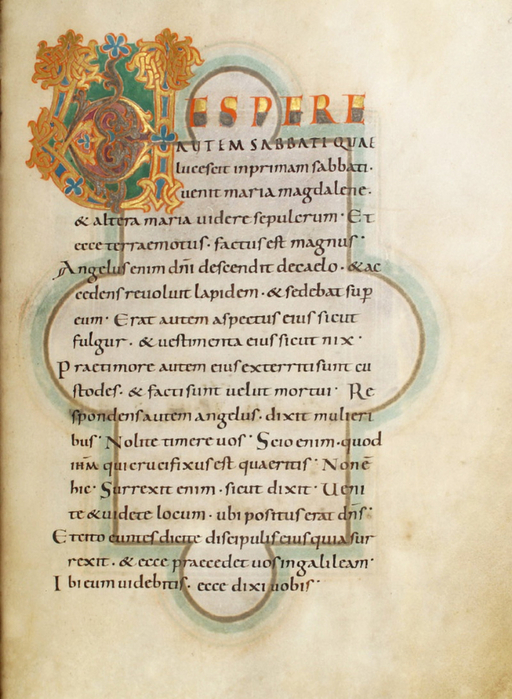 VESPERE
AUTEM SABBATI QUAE
lucescit inprimam sabbati·
uenit maria magdalene·
& altera maria uidere sepulcrum· Et
ecce terraemotus· factus est magnus·
Angelus enim dn̄i descendit decaelo· & ac
cedens reuoluit lapidem· & sedebat sup̄
eum· Erat autem aspectus eius sicut
fulgur· & uestimenta eius sicut nix·
Prae timore autem eius exterriti sunt cu
stodes· & facti sunt uelut mortui· Re
spondens autem angelus· dixit mulieri
bus· Nolite timere uos· Scio enim· quod
ihm̄ qui crucifixus est quaeritis· Non ē
hic· Surrexit enim· sicut dixit· Ueni
te & uidete locum· ubi positus erat dn̄s·
Et cito euntes dicite discipulis eius quia sur
rexit· & ecce praecedet uos in galileam·
Ibi eum uidebitis· ecce dixi uobis·